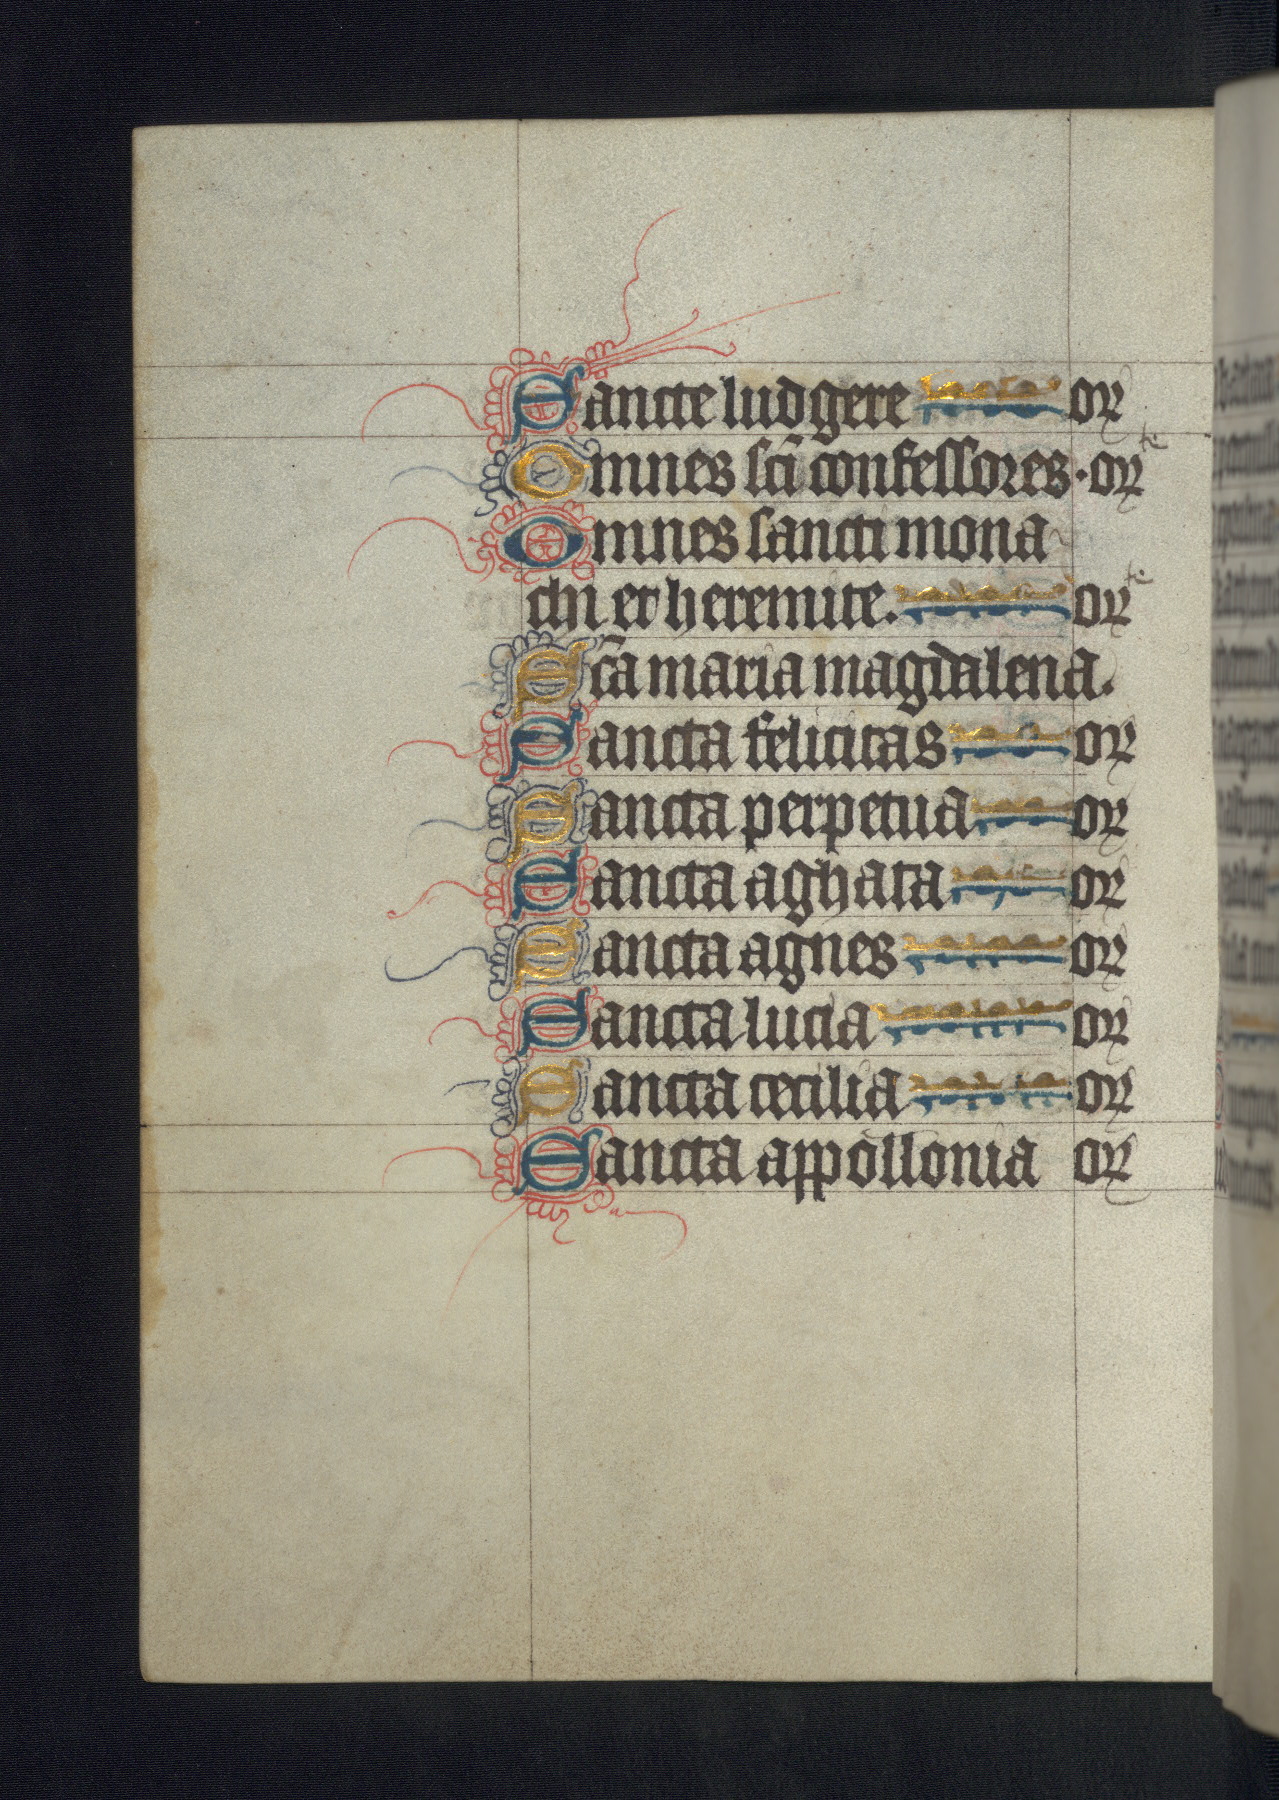 Sancte ludgere or
Omnes sci confessores. orte
Omnes sancti mona
chi et heremite. orte
Sca maria magdalena.
Sancta felicitas or
Sancta perpetua or
Sancta aghata or
Sancta agnes or
Sancta lucia or
Sancta cecilia or
Sancta appollonia or